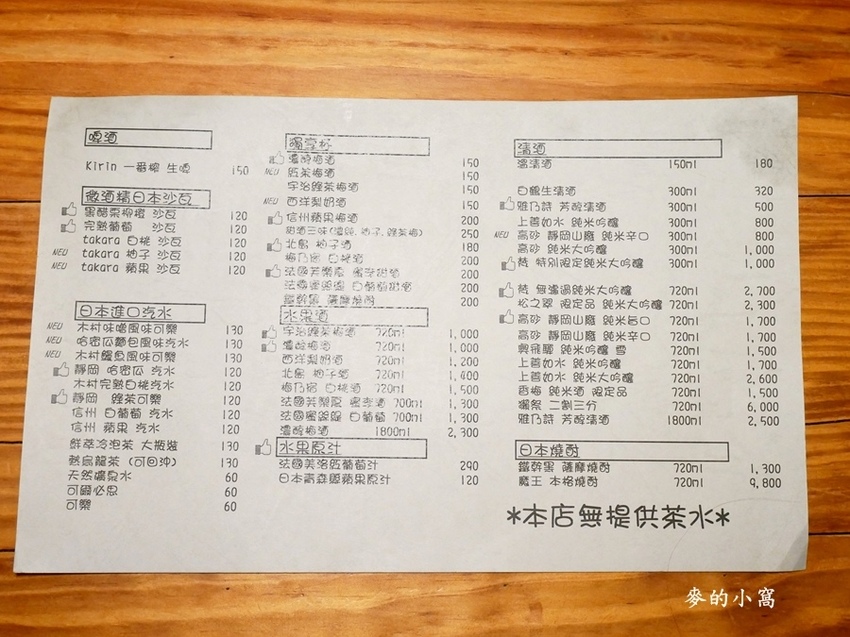 啤酒
Kirin 一番榨 生啤 150
微酒精日本沙瓦
黑醋栗柳橙 沙瓦 120
完熟葡萄 沙瓦 120
takara 白桃 沙瓦 120
NEU takara 柚子 沙瓦 120
NEU takara 蘋果 沙瓦 120
日本進口汽水
NEU 木村味噌風味可樂 130
NEU 哈密瓜麵包風味汽水 130
NEU 木村鰻魚風味可樂 130
靜岡 哈密瓜 汽水 120
木村完熟白桃汽水 120
靜岡 綠茶可樂 120
信州 白葡萄 汽水 120
信州 蘋果 汽水 120
鮮萃冷泡茶 大瓶裝 130
熱烏龍茶 (可回沖) 130
天然礦泉水 60
可爾必思 60
可樂 60
獨享杯
濃醇梅酒 150
NEU 紅茶梅酒 150
宇治綠茶梅酒 150
NEU 西洋梨奶酒 150
信州蘋果梅酒 200
甜酒三味(濃純, 柚子, 綠茶梅) 250
北島 柚子酒 180
梅乃宿 白桃酒 200
法國芙樂原 蜜李甜酒 200
法國蜜緹緹 白葡萄甜酒 200
鐵幹黑 薩摩燒酎 200
水果酒
宇治綠茶梅酒 720ml 1,000
濃醇梅酒 720ml 1,000
西洋梨奶酒 720ml 1,000
北島 柚子酒 720ml 1,200
梅乃宿 白桃酒 720ml 1,400
法國芙樂原 蜜李酒 700ml 1,300
法國蜜緹緹 白葡萄 700ml 1,300
濃醇梅酒 1800ml 2,300
水果原汁
法國美洛紅葡萄汁 290
日本青森縣蘋果原汁 120
清酒
溫清酒 150ml 180
白鶴生清酒 300ml 320
雅乃詩 芳醇清酒 300ml 500
上善如水 純米吟釀 300ml 800
NEU 高砂 靜岡山廢 純米辛口 300ml 800
高砂 純米大吟釀 300ml 1,000
梵 特別限定純米大吟釀 300ml 1,000
梵 無濾過純米大吟釀 720ml 2,700
松之翠 限定品 純米大吟釀 720ml 2,300
高砂 靜岡山廢 純米旨口 720ml 1,700
高砂 靜岡山廢 純米辛口 720ml 1,700
興飛驒 純米吟釀 雪 720ml 1,500
上善如水 純米吟釀 720ml 1,700
上善如水 純米大吟釀 720ml 2,600
香梅 純米酒 限定品 720ml 1,500
獺祭 二割三分 720ml 6,000
雅乃詩 芳醇清酒 1800ml 2,500
日本燒酎
鐵幹黑 薩摩燒酎 720ml 1,300
魔王 本格燒酎 720ml 9,800
*本店無提供茶水*
麥的小窩